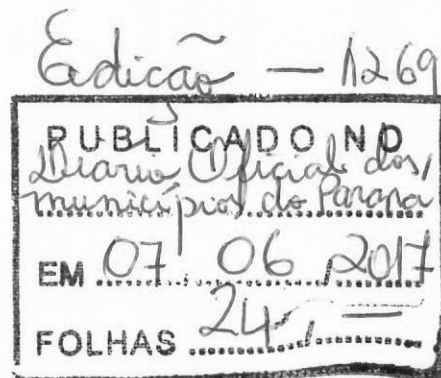 Edição — 1269
PUBLICADO NO
Diário Oficial dos
municípios do Paraná
EM 07 / 06 / 2017
FOLHAS 24 / —